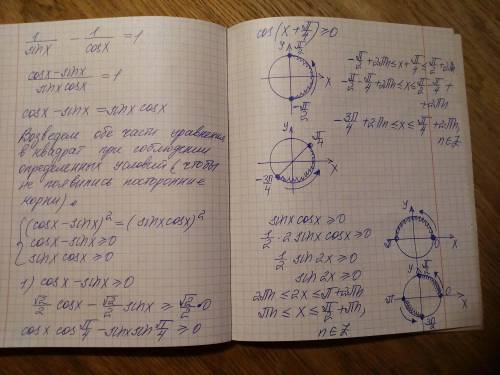 1/sinx - 1/cosx = 1
(cosx-sinx)/(sinx cosx) = 1
cosx-sinx = sinx cosx
Возведем обе части уравнения
в квадрат при соблюдении
определенных условий (чтобы
не появились посторонние
корни).
{(cosx-sinx)² = (sinx cosx)²
cosx-sinx ≥ 0
sinx cosx ≥ 0
1) cosx-sinx ≥ 0
√2/2 cosx - √2/2 sinx ≥ √2/2 · 0
cosx cos π/4 - sinx sin π/4 ≥ 0
cos(x + π/4) ≥ 0
y π/2
x
-π/2
-π/2 + 2πn ≤ x + π/4 ≤ π/2 + 2πn
-π/2 - π/4 + 2πn ≤ x ≤ π/2 - π/4 +
+ 2πn
-3π/4 + 2πn ≤ x ≤ π/4 + 2πn,
n∈Z
y π/4
x
-3π/4
sinx cosx ≥ 0
1/2 · 2 sinx cosx ≥ 0
1/2 sin2x ≥ 0
sin2x ≥ 0
2πn ≤ 2x ≤ π + 2πn
πn ≤ x ≤ π/2 + πn,
n∈Z
y
π 0 x
y π/2
π 0 x
3π/2